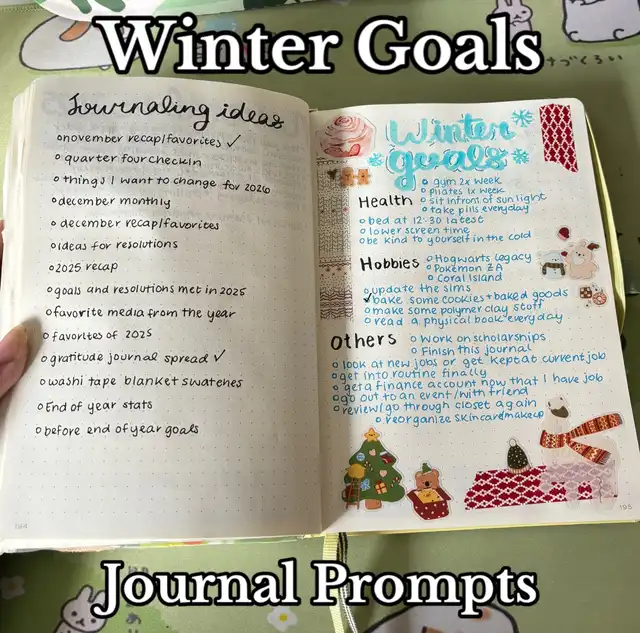 Winter Goals
Journaling ideas
november recap/favorites ✓
quarter four checkin
things I want to change for 2026
december monthly
december recap/favorites
ideas for resolutions
2025 recap
goals and resolutions met in 2025
favorite media from the year
favorites of 2025
gratitude journal spread ✓
washi tape blanket swatches
End of year stats
before end of year goals
184
Winter
goals
Health
gym 2x week
pilates 1x week
sit infront of sun light
take pills everyday
bed at 12:30 latest
lower screen time
be kind to yourself in the cold
Hobbies
Hogwarts Legacy
Pokémon ZA
Coral Island
update the sims
✓bake some cookies + baked goods
make some polymer clay stuff
read a physical book everyday
others
Work on scholarships
Finish this journal
look at new jobs or get kept at current job
get into routine finally
get a finance account now that I have job
go out to an event/with friend
review/go through closet again
reorganize skincare/makeup
185
Journal Prompts